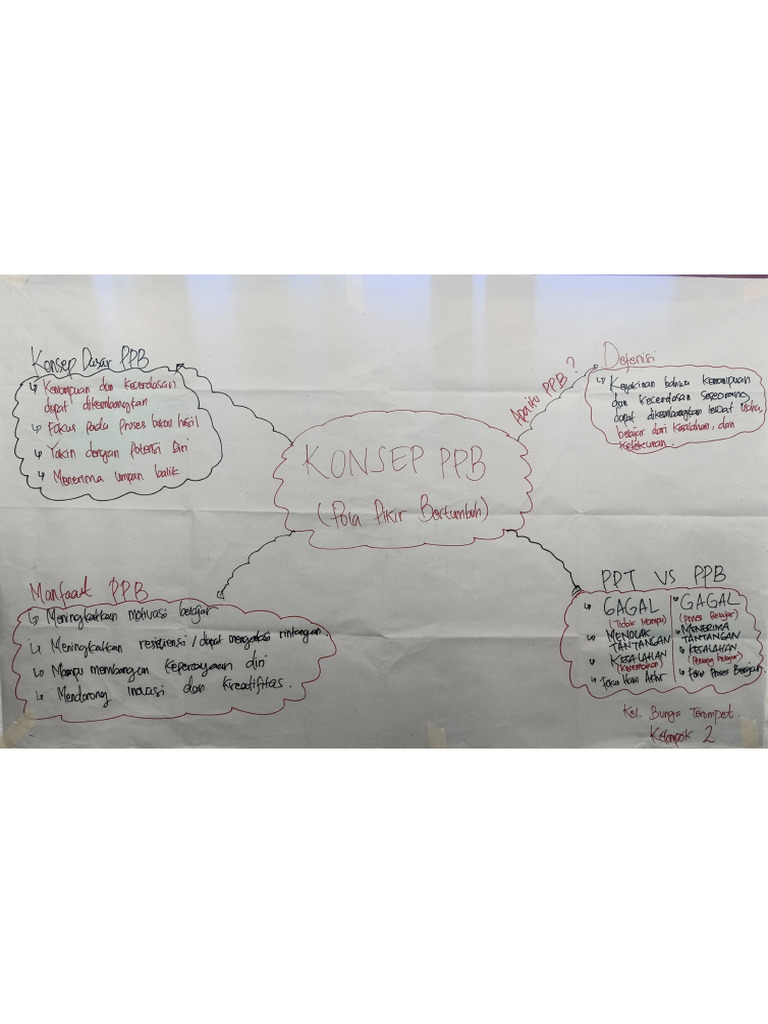 Konsep Dasar PPB
↳ Kemampuan dan kecerdasan
dapat dikembangkan
↳ Fokus pada proses bukan hasil
↳ Yakin dengan potensi diri
↳ Menerima umpan balik
Apa itu PPB?
Defenisi
↳ Keyakinan bahwa kemampuan
dan kecerdasan seseorang
dapat dikembangkan lewat Usaha,
belajar dari kesalahan, dan
ketekunan.
KONSEP PPB
(Pola Pikir Bertumbuh)
Manfaat PPB
↳ Meningkatkan motivasi belajar
↳ Meningkatkan resiliensi / dapat mengatasi rintangan
↳ Mampu membangun kepercayaan diri
↳ Mendorong inovasi dan kreatifitas.
PPT VS PPB
↳ GAGAL
(Tidak Mampu)
↳ MENOLAK
TANTANGAN
↳ KESALAHAN
↳ Fokus Hasil Akhir
↳ GAGAL
(Proses Belajar)
↳ MENERIMA
TANTANGAN
↳ KESALAHAN
(Peluang belajar)
↳ Fokus Proses
Kel. Bunga Terompet.
Kelompok 2